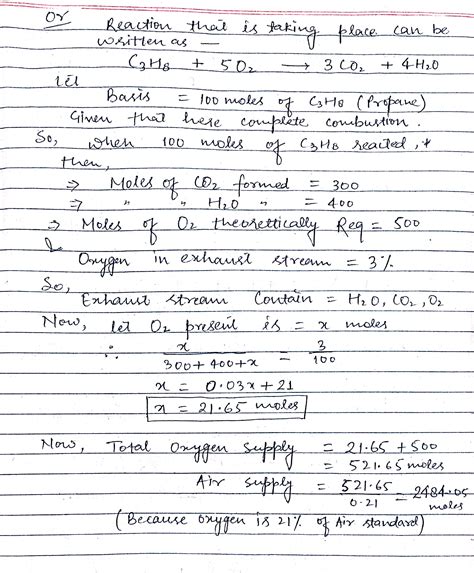 Or
Reaction that is taking place can be
written as —
C3H8 + 5O2 → 3CO2 + 4H2O
let
Basis = 100 moles of C3H8 (Propane)
Given that here complete combustion.
So, when 100 moles of C3H8 reacted,
then,
⇒ Moles of CO2 formed = 300
⇒ " " H2O " = 400
⇒ Moles of O2 theorettically Req = 500
&
Oxygen in exhaust stream = 3%
So,
Exhaust stream Contain = H2O, CO2, O2
Now, let O2 present is = x moles
∴ x / (300 + 400 + x) = 3 / 100
x = 0.03x + 21
x = 21.65 moles
Now, Total Oxygen supply = 21.65 + 500
= 521.65 moles
Air supply = 521.65 / 0.21 = 2484.05 moles
(Because oxygen is 21% of Air standard)